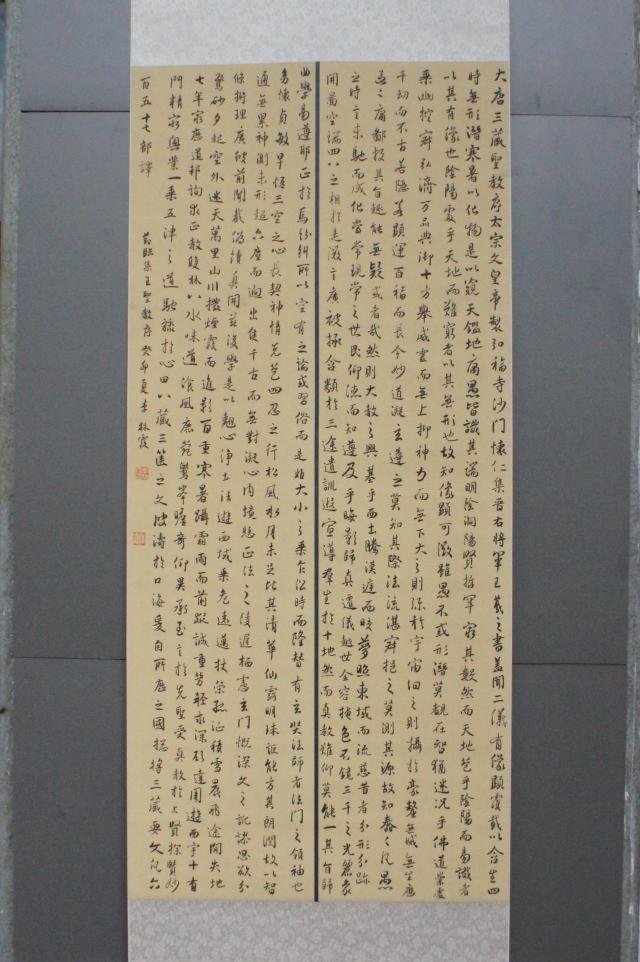 大唐三藏聖教序太宗文皇帝製弘福寺沙門懷仁集晉右將軍王羲之書蓋聞二儀有像顯覆載以含生四
時無形潛寒暑以化物是以窺天鑑地庸愚皆識其端明陰洞陽賢哲罕窮其數然而天地苞乎陰陽而易識者
以其有像也陰陽處乎天地而難窮者以其無形也故知像顯可徵雖愚不惑形潛莫覩在智猶迷況乎佛道崇虛
乘幽控寂弘濟萬品典御十方舉威靈而無上抑神力而無下大之則彌於宇宙細之則攝於豪釐無滅無生歷
千劫而不古若隱若顯運百福而長今妙道凝玄遵之莫知其際法流湛寂挹之莫測其源故知蠢蠢凡愚
區區庸鄙投其旨趣能無疑或者哉然則大教之興基乎西土騰漢庭而皎夢照東域而流慈昔者分形分跡
之時言未馳而成化當常現常之世民仰德而知遵及乎晦影歸真遷儀越世金容掩色不鏡三千之光麗象
開圖空端四八之相於是微言廣被拯含類於三途遺訓遐宣導群生於十地然而真教難仰莫能一其旨歸
曲學易遵邪正於焉紛糾所以空有之論或習俗而是非大小之乘乍沿時而隆替有玄奘法師者法門之領袖也
幼懷貞敏早悟三空之心長契神情先苞四忍之行松風水月未足比其清華仙露明珠詎能方其朗潤故以智
通無累神測未形超六塵而迥出隻千古而無對凝心內境悲正法之陵遲栖慮玄門慨深文之訛謬思欲分
條析理廣彼前聞截偽續真開茲後學是以翹心淨土法遊西域乘危遠邁杖策孤征積雪晨飛途間失地
驚砂夕起空外迷天萬里山川撥煙霞而進影百重寒暑躡霜雨而前蹤誠重勞輕求深願達周遊西宇十有
七年窮歷道邦詢求正教雙林八水味道飡風鹿菀鷲峯瞻奇仰異承至言於先聖受真教於上賢探賾妙
門精窮奧業一乘五律之道馳驟於心田八藏三篋之文波濤於口海爰自所歷之國揔將三藏要文凡六
百五十七部譯
節臨集王聖教序癸卯夏李林霞